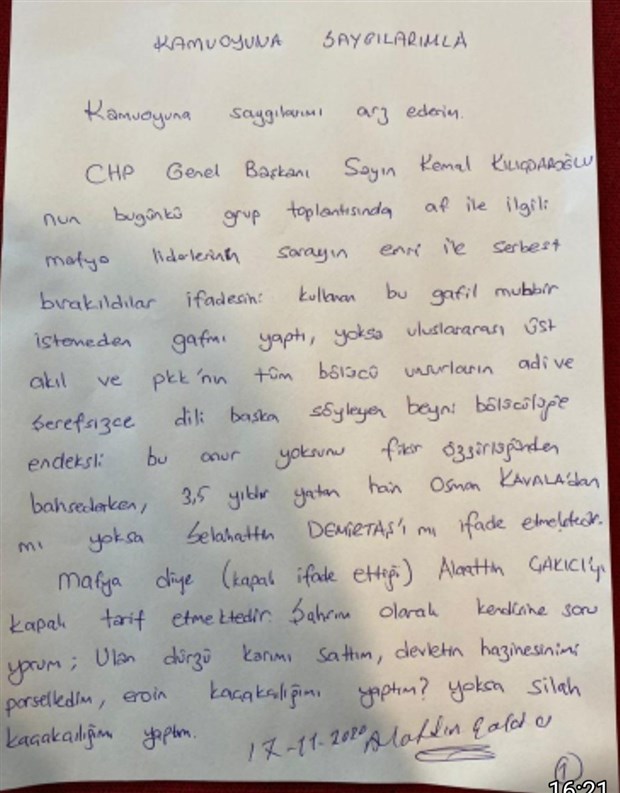 KAMUOYUNA SAYGILARIMLA
Kamuoyuna saygılarımı arz ederim.
CHP Genel Başkanı Sayın Kemal KILIÇDAROĞLU
nun bugünkü grup toplantısında af ile ilgili
mafya liderlerinin sarayın emri ile serbest
bırakıldılar ifadesini kullanan bu gafil muhbir
istemeden gafmı yaptı, yoksa uluslararası üst
akıl ve pkk'nın tüm bölücü unsurların adi ve
şerefsizce dili başka söyleyen beyni bölücülüğe
endeksli bu onur yoksunu fikir özgürlüğünden
bahsederken, 3,5 yıldır yatan hain Osman KAVALA'dan
mı yoksa Selahattin DEMİRTAŞ'ı mı ifade etmektedir.
Mafya diye (kapalı ifade ettiği) Alaattin ÇAKICI'yı
kapalı tarif etmektedir. Şahsım olarak kendisine soru
yorum; Ulan dürzü karımı sattım, devletin hazinesinimi
porselledim, eroin kaçakçılığımı yaptım? yoksa silah
kaçakçılığımı yaptım.
17-11-2020 Alattin Çakıcı
1
16:21